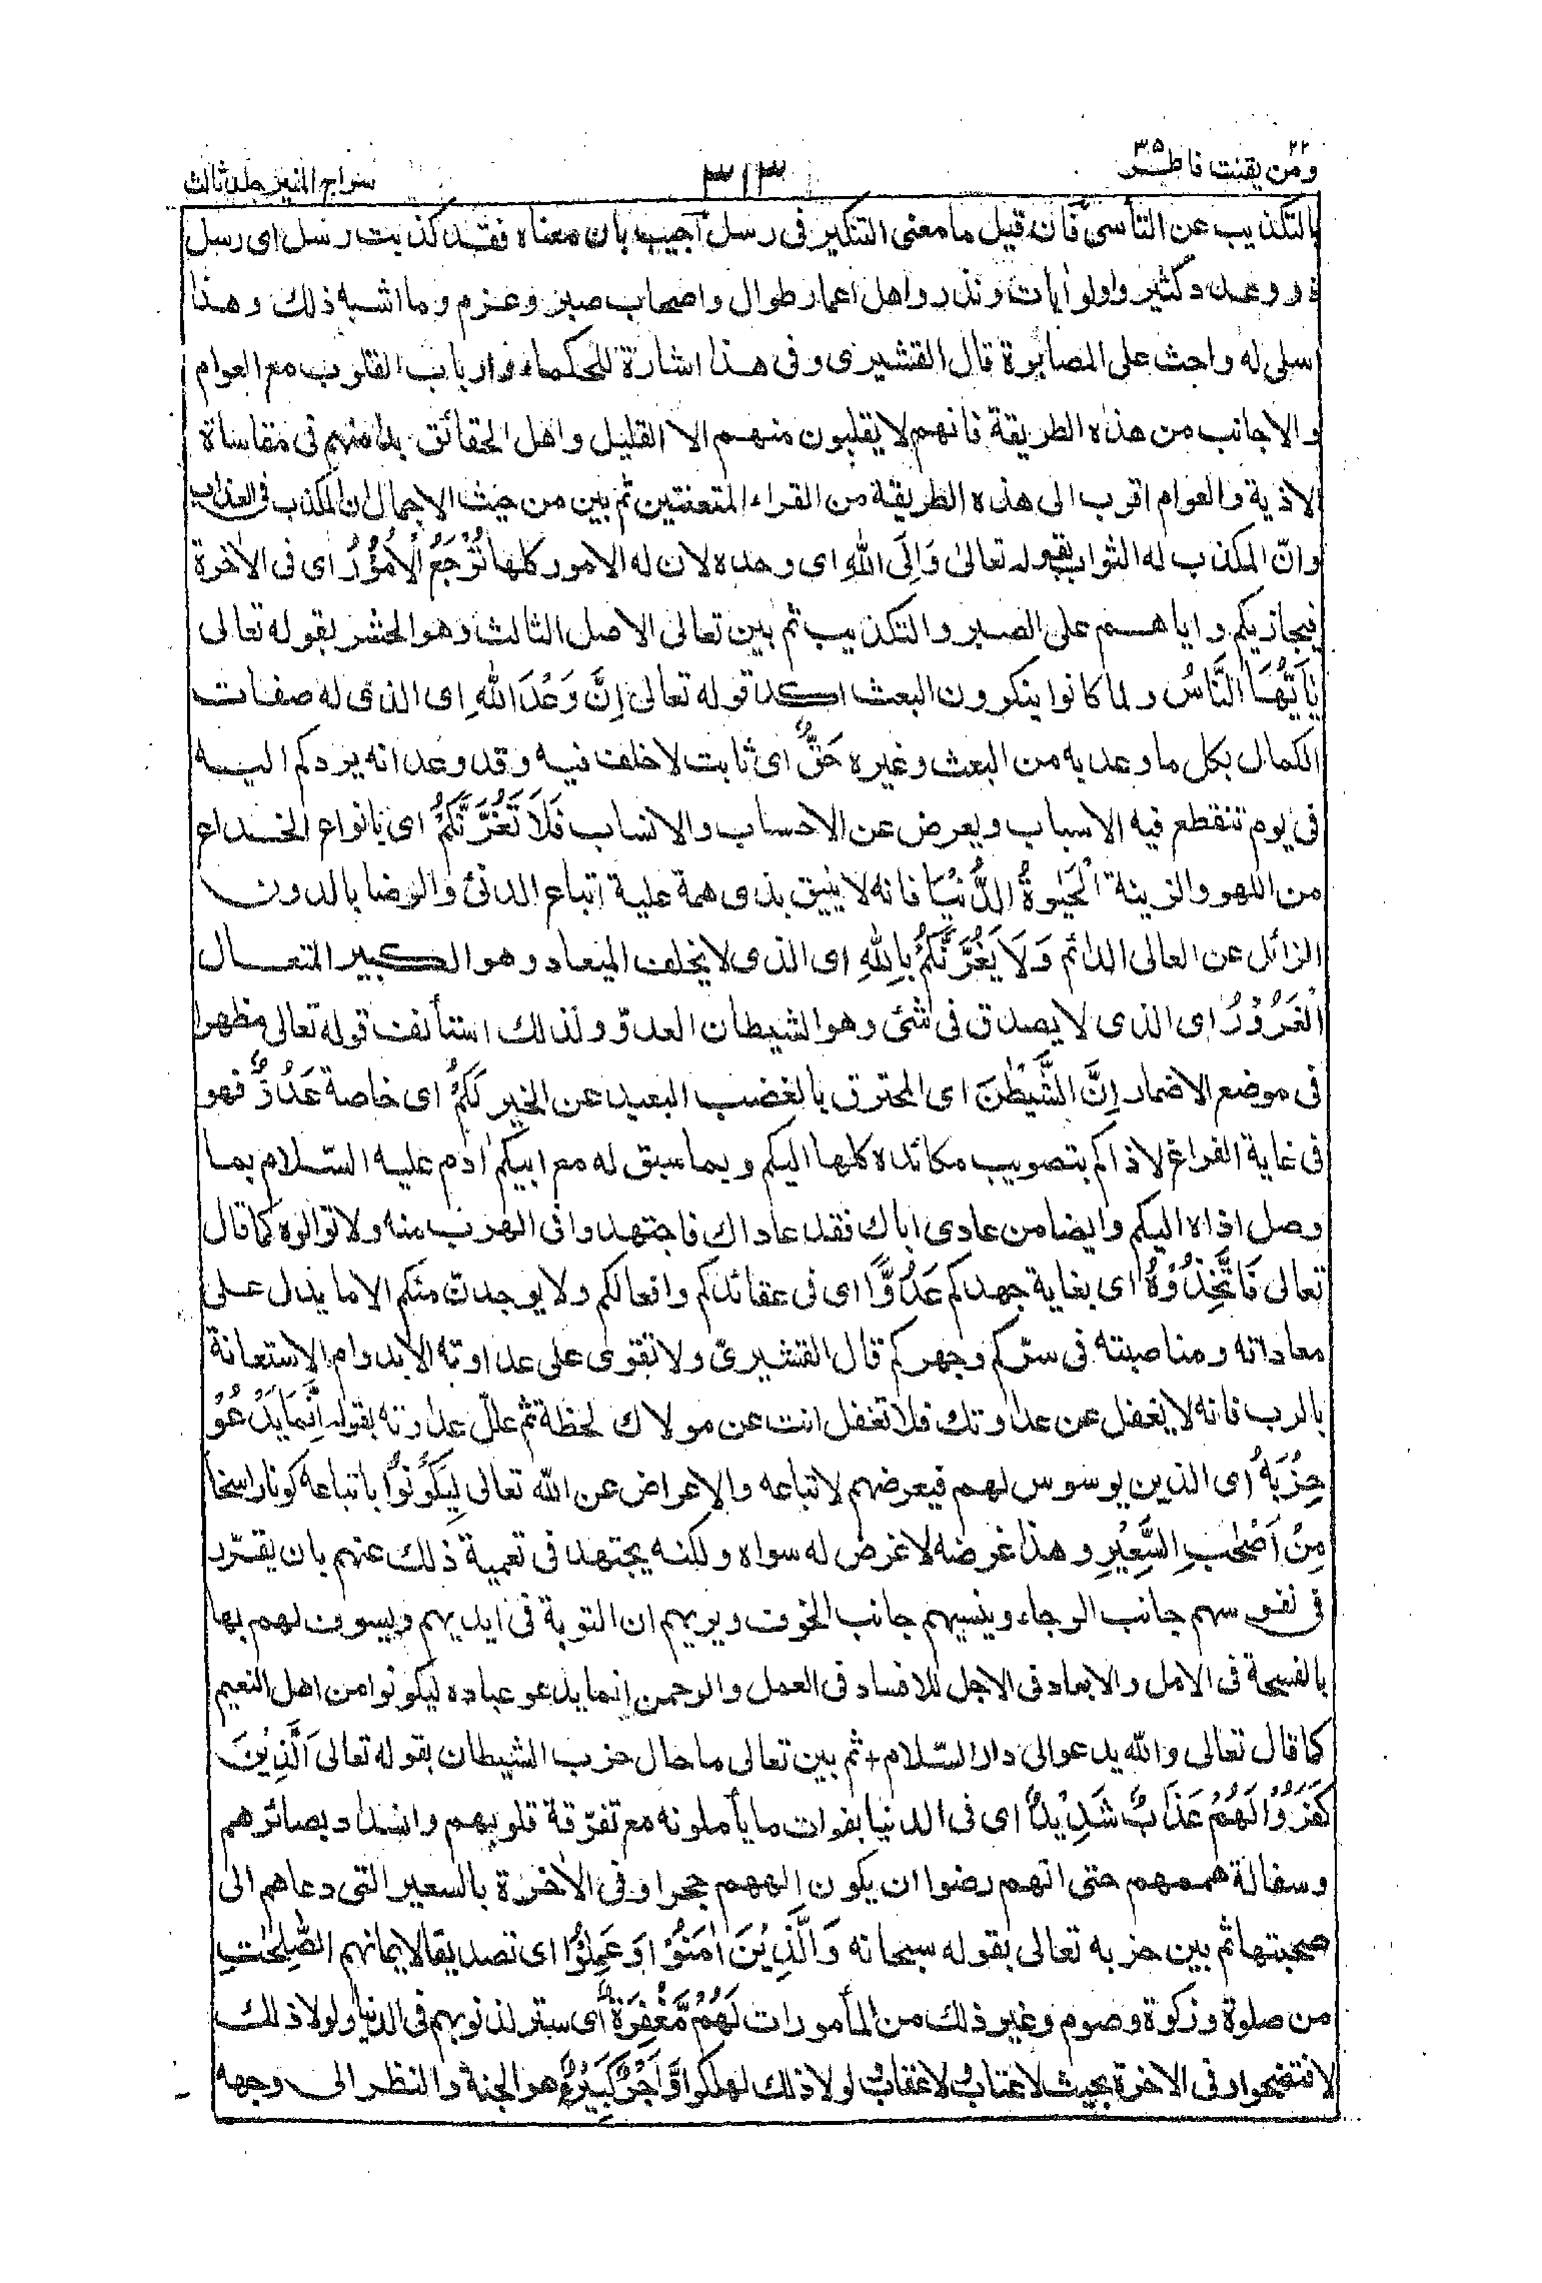 ومن يقنت ٢٢ فاطر ٣٥
٣١٣
سراج المنير جلد ثالث
بالتكذيب عن التأسى فان قيل ما معنى التنكير فى رسل اجيب بان معناه فقد كذبت رسل اى رسل
ذو وعدد كثير واولوا يات ونذر واهل اعمار طوال واصحاب صبر وعزم وما اشبه ذلك وهذا
اسلى له واحث على المصابرة قال القشيرى وفى هذا اشارة للحكماء وارباب القلوب مع العوام
والاجانب من هذه الطريقة فانهم لا يقلبون منهم الا القليل واهل الحقائق بدا منهم فى مقاساة
الاذية والعوام اقرب الى هذه الطريقة من القراء المتعنتين ثم بين من حيث الاجمال ان المكذب فى العذاب
وانّ المكذب له الثواب بقوله تعالىٰ وَاِلَى اللّٰهِ اى وحده لان له الامور كلها تُرْجَعُ الْاُمُوْرُ اى فى الاٰخرة
فيجازيكم واياهم على الصبر والتكذيب ثم بين تعالى الاصل الثالث وهو الحشر بقوله تعالى
يٰاَيُّهَا النَّاسُ ولما كانوا ينكرون البعث اكد قوله تعالى اِنَّ وَعْدَ اللّٰهِ اى الذى له صفات
الكمال بكل ما وعد به من البعث وغيره حَقٌّ اى ثابت لا خلف فيه وقد وعد انه يردكم اليه
فى يوم تنقطع فيه الاسباب ويعرض عن الاحساب والانساب فَلَا تَغُرَّنَّكُمُ اى بانواع الخداع
من اللهو والزينة الْحَيٰوةُ الدُّنْيَا فانه لا يليق بذى همة علية اتباع الدنئ والرضا بالدون
الزائل عن العالى الدائم وَلَا يَغُرَّنَّكُمْ بِاللّٰهِ اى الذى لا يخلف الميعاد وهو الكبير المتعال
الْغَرُوْرُ اى الذى لا يصدق فى شئ وهو الشيطان العدوّ ولذلك استأنف قوله تعالى مظهرا
فى موضع الاضمار اِنَّ الشَّيْطٰنَ اى المحترق بالغضب البعيد عن الخير لَكُمْ اى خاصة عَدُوٌّ فهو
فى غاية الفراغ لاذاكم بتصويب مكائده كلها اليكم وبما سبق له مع ابيكم اٰدم عليه السّلام بما
وصل اذاه اليكم وايضا من عادى اباك فقد عاداك فاجتهدوا فى الهرب منه ولا توالوه كما قال
تعالى فَاتَّخِذُوْهُ اى بغاية جهدكم عَدُوًّا اى فى عقائدكم وافعالكم ولا يوجدنّ منكم الا ما يدل على
معاداته ومناصبته فى سرّكم وجهركم قال القشيرىّ ولا تقوى على عداوته الا بدوام الاستعانة
بالرب فانه لا يغفل عن عداوتك فلا تغفل انت عن مولاك لحظة ثم علّل عداوته بقوله اِنَّمَا يَدْعُوْ
حِزْبَهٗ اى الذين يوسوس لهم فيعرضهم لاتباعه والاعراض عن اللّه تعالى لِيَكُوْنُوْا باتباعه كونا راسخا
مِنْ اَصْحٰبِ السَّعِيْرِ وهذا غرضه لا غرض له سواه ولكنه يجتهد فى تعمية ذلك عنهم بان يقرّر
فى نفوسهم جانب الرجاء وينسيهم جانب الخوف ويريهم ان التوبة فى ايديهم ويسوف لهم بها
بالفسحة فى الامل والابعاد فى الاجل للافساد فى العمل والرحمن انما يدعو عباده ليكونوا من اهل النعيم
كما قال تعالى واللّه يدعوا الى دار السّلام + ثم بين تعالى ما حال حزب الشيطان بقوله تعالى اَلَّذِيْنَ
كَفَرُوْا لَهُمْ عَذَابٌ شَدِيْدٌ اى فى الدنيا بفوات ما يأملونه مع تفرّقة قلوبهم وانسداد بصائرهم
وسفالة هممهم حتى انهم رضوا ان يكون الههم حجرا وفى الاٰخرة بالسعير التى دعاهم الى
صحبتها ثم بين حزبه تعالى بقوله سبحانه وَالَّذِيْنَ اٰمَنُوْا وَعَمِلُوْا اى تصديقا لايمانهم الصّٰلِحٰتِ
من صلوة وزكوة وصوم وغير ذلك من المأمورات لَهُمْ مَّغْفِرَةٌ اى ستر لذنوبهم فى الدنيا ولولا ذلك
لافتضحوا وفى الاخرة بحيث لا عتاب لا عقاب لولا ذلك لهلكوا وَّاَجْرٌ كَبِيْرٌ هو الجنة والنظر الى وجهه